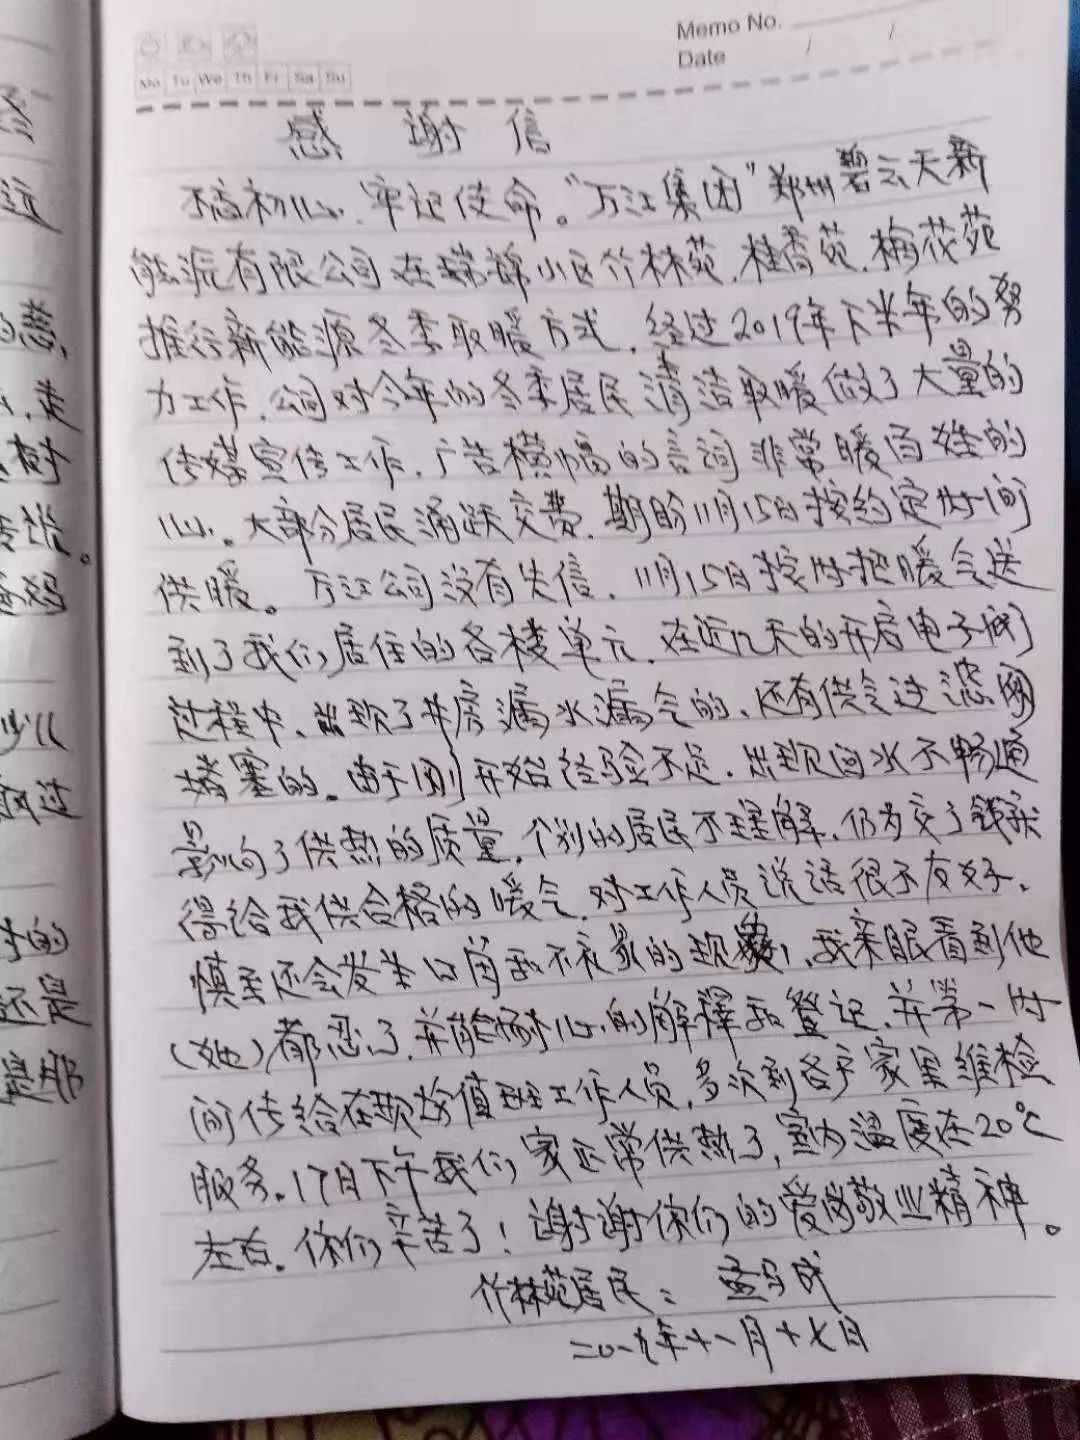 Memo No.
Date / /
Mo Tu We Th Fr Sa Su
感谢信
不忘初心、牢记使命。“万江集团”郑州碧云天新
能源有限公司在瑞锦小区竹林苑、桂香苑、梅花苑
推行新能源冬季取暖方式,经过2019年下半年的努
力工作,公司对今年的冬季居民清洁取暖做了大量的
传媒宣传工作,广告横幅的言词非常暖百姓的
心。大部分居民涌跃交费,期盼11月15日按约定时间
供暖。万江公司没有失信,11月15日按时把暖气送
到了我们居住的各楼单元,在近几天的开启电子阀
过程中、出现了井房漏水漏气的、还有供气过滤网
堵塞的。由于刚开始经验不足,出现回水不畅通
影响了供热的质量,个别的居民不理解,仍为交了钱就
得给我供合格的暖气,对工作人员说话很不友好、
慎至还会发生口角和不礼貌的现象,我亲眼看到他
(她)都忍了,并能耐心的解释和登记,并第一时
间传给在现场值班工作人员,多次到各户家里维检
服务。17日下午我们家正常供热了,室内温度在20℃
左右。你们辛苦了!谢谢你们的爱岗敬业精神。
竹林苑居民:
二〇一九年十一月十七日
少儿
过
的
还是